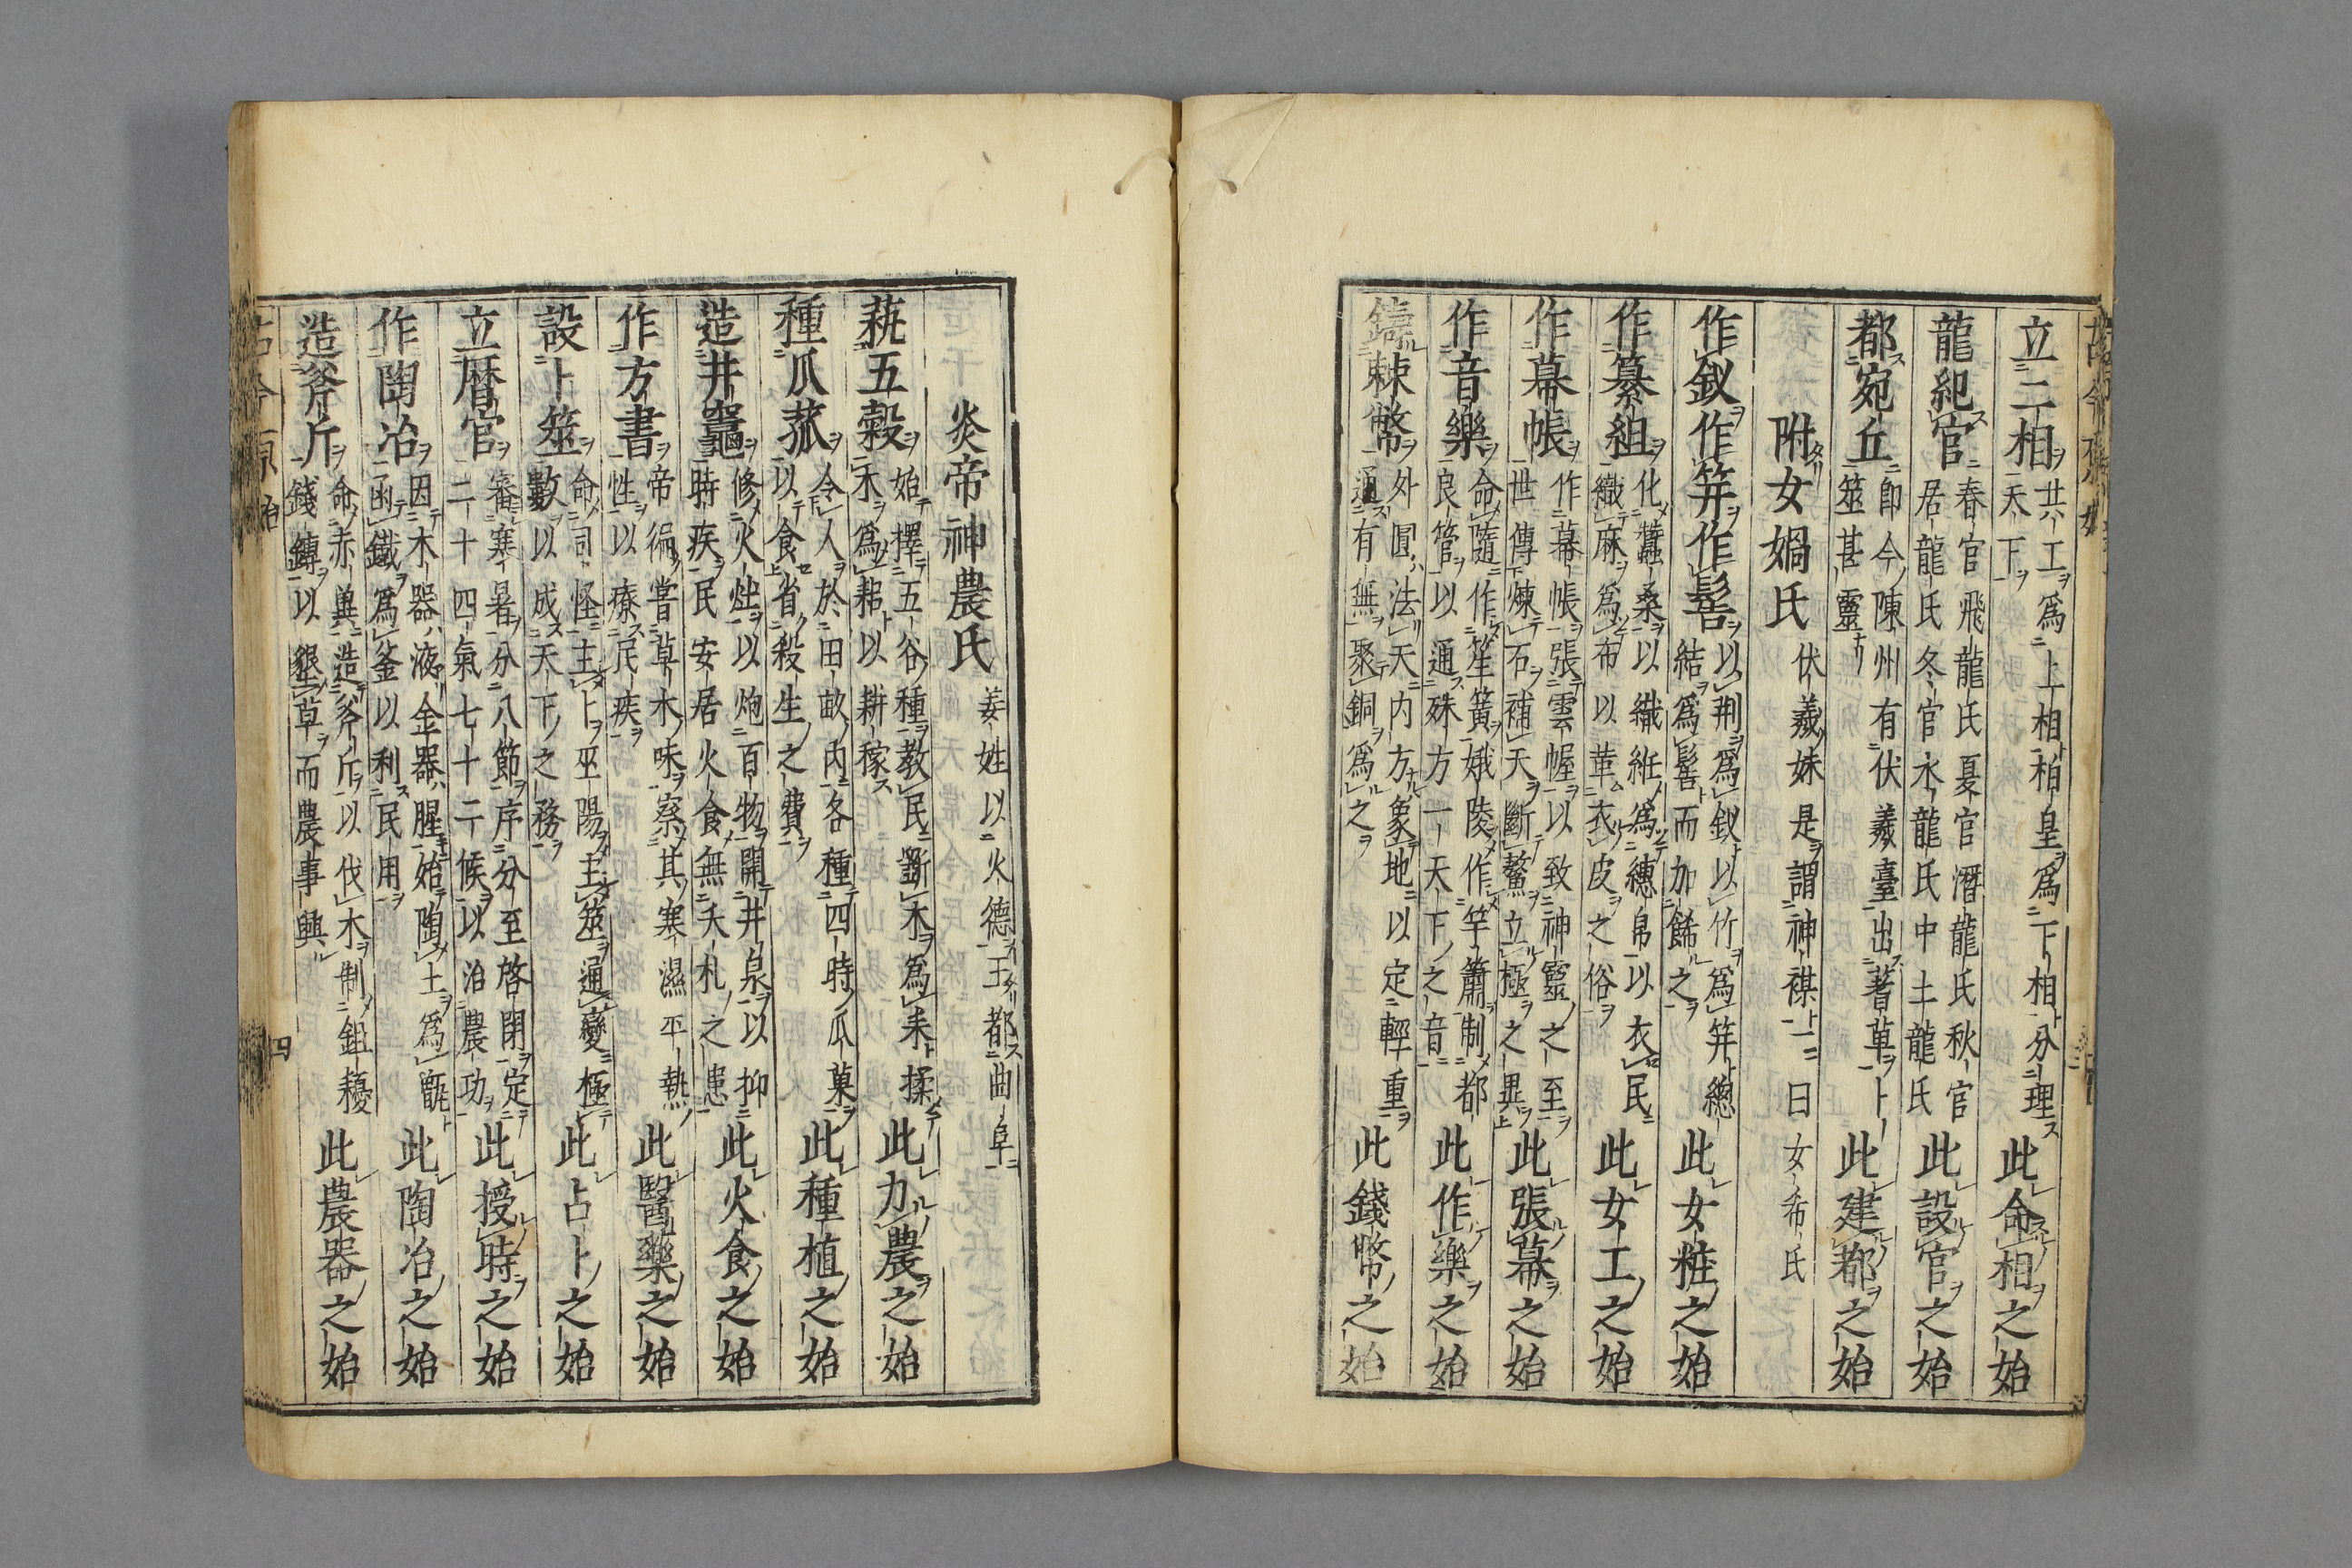 立二相共工爲上相柏皇爲下相分理天下此命相之始
龍紀官春官飛龍氏夏官潛龍氏秋官居龍氏冬官水龍氏中土龍氏此設官之始
都宛丘即今陳州有伏羲臺出蓍草卜筮甚靈此建都之始
附女媧氏伏羲妹是謂神禖一曰女希氏
作釵作笄作髻以荊爲釵以竹爲笄總結爲髻而加餙之此女粧之始
作纂組化蠶桑以織絍爲繐帛以衣民織麻爲布以革衣皮之俗此女工之始
作幕帳作幕帳張雲幄以致神靈之至世傳煉石補天斷鰲立極之異此張幕之始
作音樂命隨作笙簧娥陵作竽簫制都良管以通殊方一天下之音此作樂之始
鑄棘幣外圓法天内方象地以定輕重通有無聚銅爲之此錢幣之始
炎帝神農氏姜姓以火德王都曲阜
蓺五糓始擇五谷種教民斵木爲耒揉木爲耜以耕稼此力農之始
種瓜蓏令人於田畝内各種四時瓜菓以食省殺生之費此種植之始
造井竈修火炷以炮百物開井泉以抑時疾民安居火食無夭札之患此火食之始
作方書帝徧嘗草木味察其寒濕平熱性以療民疾此醫藥之始
設卜筮命司怪主卜巫陽主筮通變極數以成天下之務此占卜之始
立暦官審寒暑分八節序分至啓閉定二十四氣七十二候以治農功此授時之始
作陶冶因木器液金器腥始陶土爲甑凾鐵爲釜以利民用此陶冶之始
造斧斤命赤兾造斧斤以伐木制鉏耰錢鎛以墾草而農事興此農器之始
四